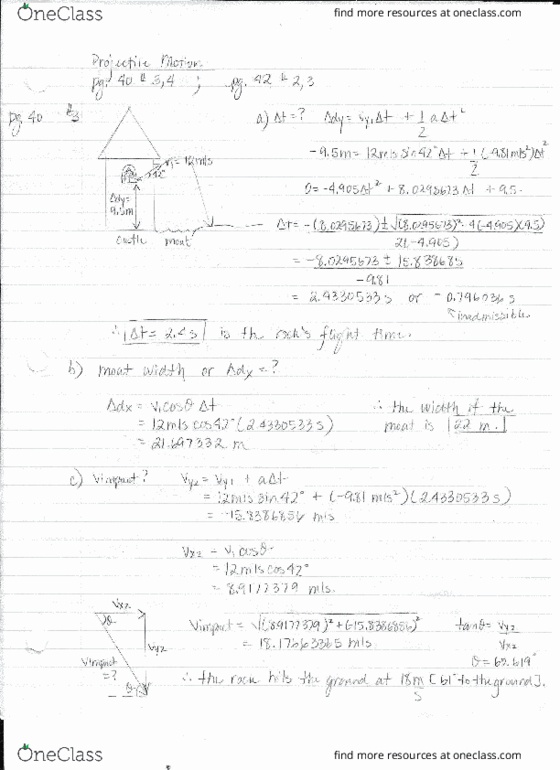 OneClass
find more resources at oneclass.com
Projectile Motion
pg. 40 # 3,4 ; pg. 42 # 2,3
pg. 40 #3
a) Δt = ? Δdy = vy₁Δt + 1/2 aΔt²
v₁ = 12m/s
42°
Δdy = 9.5m
castle moat
-9.5m = 12m/s sin42°Δt + 1/2 (-9.81m/s²)Δt²
0 = -4.905Δt² + 8.0295673Δt + 9.5
Δt = -(8.0295673) ± √(8.0295673)² - 4(-4.905)(9.5) / 2(-4.905)
= -8.0295673 ± 15.838685 / -9.81
= 2.4330533s or -0.796036s
inadmissible.
∴ Δt = 2.4s is the rock's flight time.
b) moat width or Δdx = ?
Δdx = v₁cosθ Δt
= 12m/s cos42° (2.4330533s)
= 21.697332 m
∴ the width if the
moat is 22 m.
c) Vimpact? Vy₂ = Vy₁ + aΔt
= 12m/s sin42° + (-9.81 m/s²)(2.4330533s)
= -15.8386856 m/s
Vx₂ = v₁cosθ
= 12m/s cos42°
= 8.9177379 m/s.
Vx₂
θ
Vy₂
Vimpact = ?
θ
Vimpact = √(8.9177379)² + (-15.8386856)²
= 18.17663365 m/s
tanθ = Vy₂/Vx₂
θ = 60.619°
∴ the rock hits the ground at 18m/s [61° to the ground].
OneClass
find more resources at oneclass.com